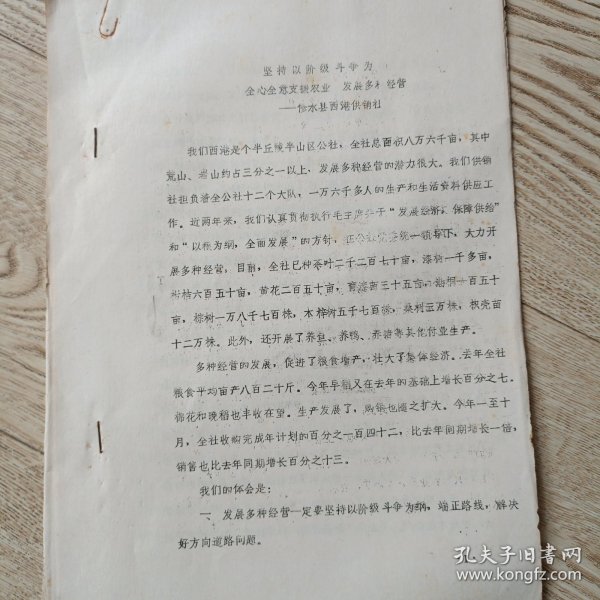 坚持以阶级斗争为
全心全意支援农业 发展多种经营
——修水县西港供销社
我们西港是个半丘陵半山区公社，全社总面积八万六千亩，其中
荒山、岩山约占三分之一以上，发展多种经营的潜力很大。我们供销
社担负着全公社十二个大队，一万六千多人的生产和生活资料供应工
作。近两年来，我们认真贯彻执行毛主席关于“发展经济，保障供给”
和“以粮为纲，全面发展”的方针，在公社党委统一领导下，大力开
展多种经营，目前，全社已种茶叶二千二百七十亩，漆树一千多亩，
油桔六百五十亩，黄花二百五十亩，三十五亩，油桐一百五十
亩，棕树一万八千七百株，木梓树五千七百株，桑树三万株，枳壳苗
十二万株。此外，还开展了养鱼、养鸭、养猪等其他付业生产。
多种经营的发展，促进了粮食增产，壮大了集体经济。去年全社
粮食平均亩产八百二十斤。今年早稻又在去年的基础上增长百分之七。
棉花和晚稻也丰收在望。生产发展了，购销也随之扩大。今年一至十
月，全社收购完成年计划的百分之一百四十二，比去年同期增长一倍，
销售也比去年同期增长百分之十三。
我们的体会是：
一、发展多种经营一定要坚持以阶级斗争为纲，端正路线，解决
好方向道路问题。
孔夫子旧书网
www.kongfz.com